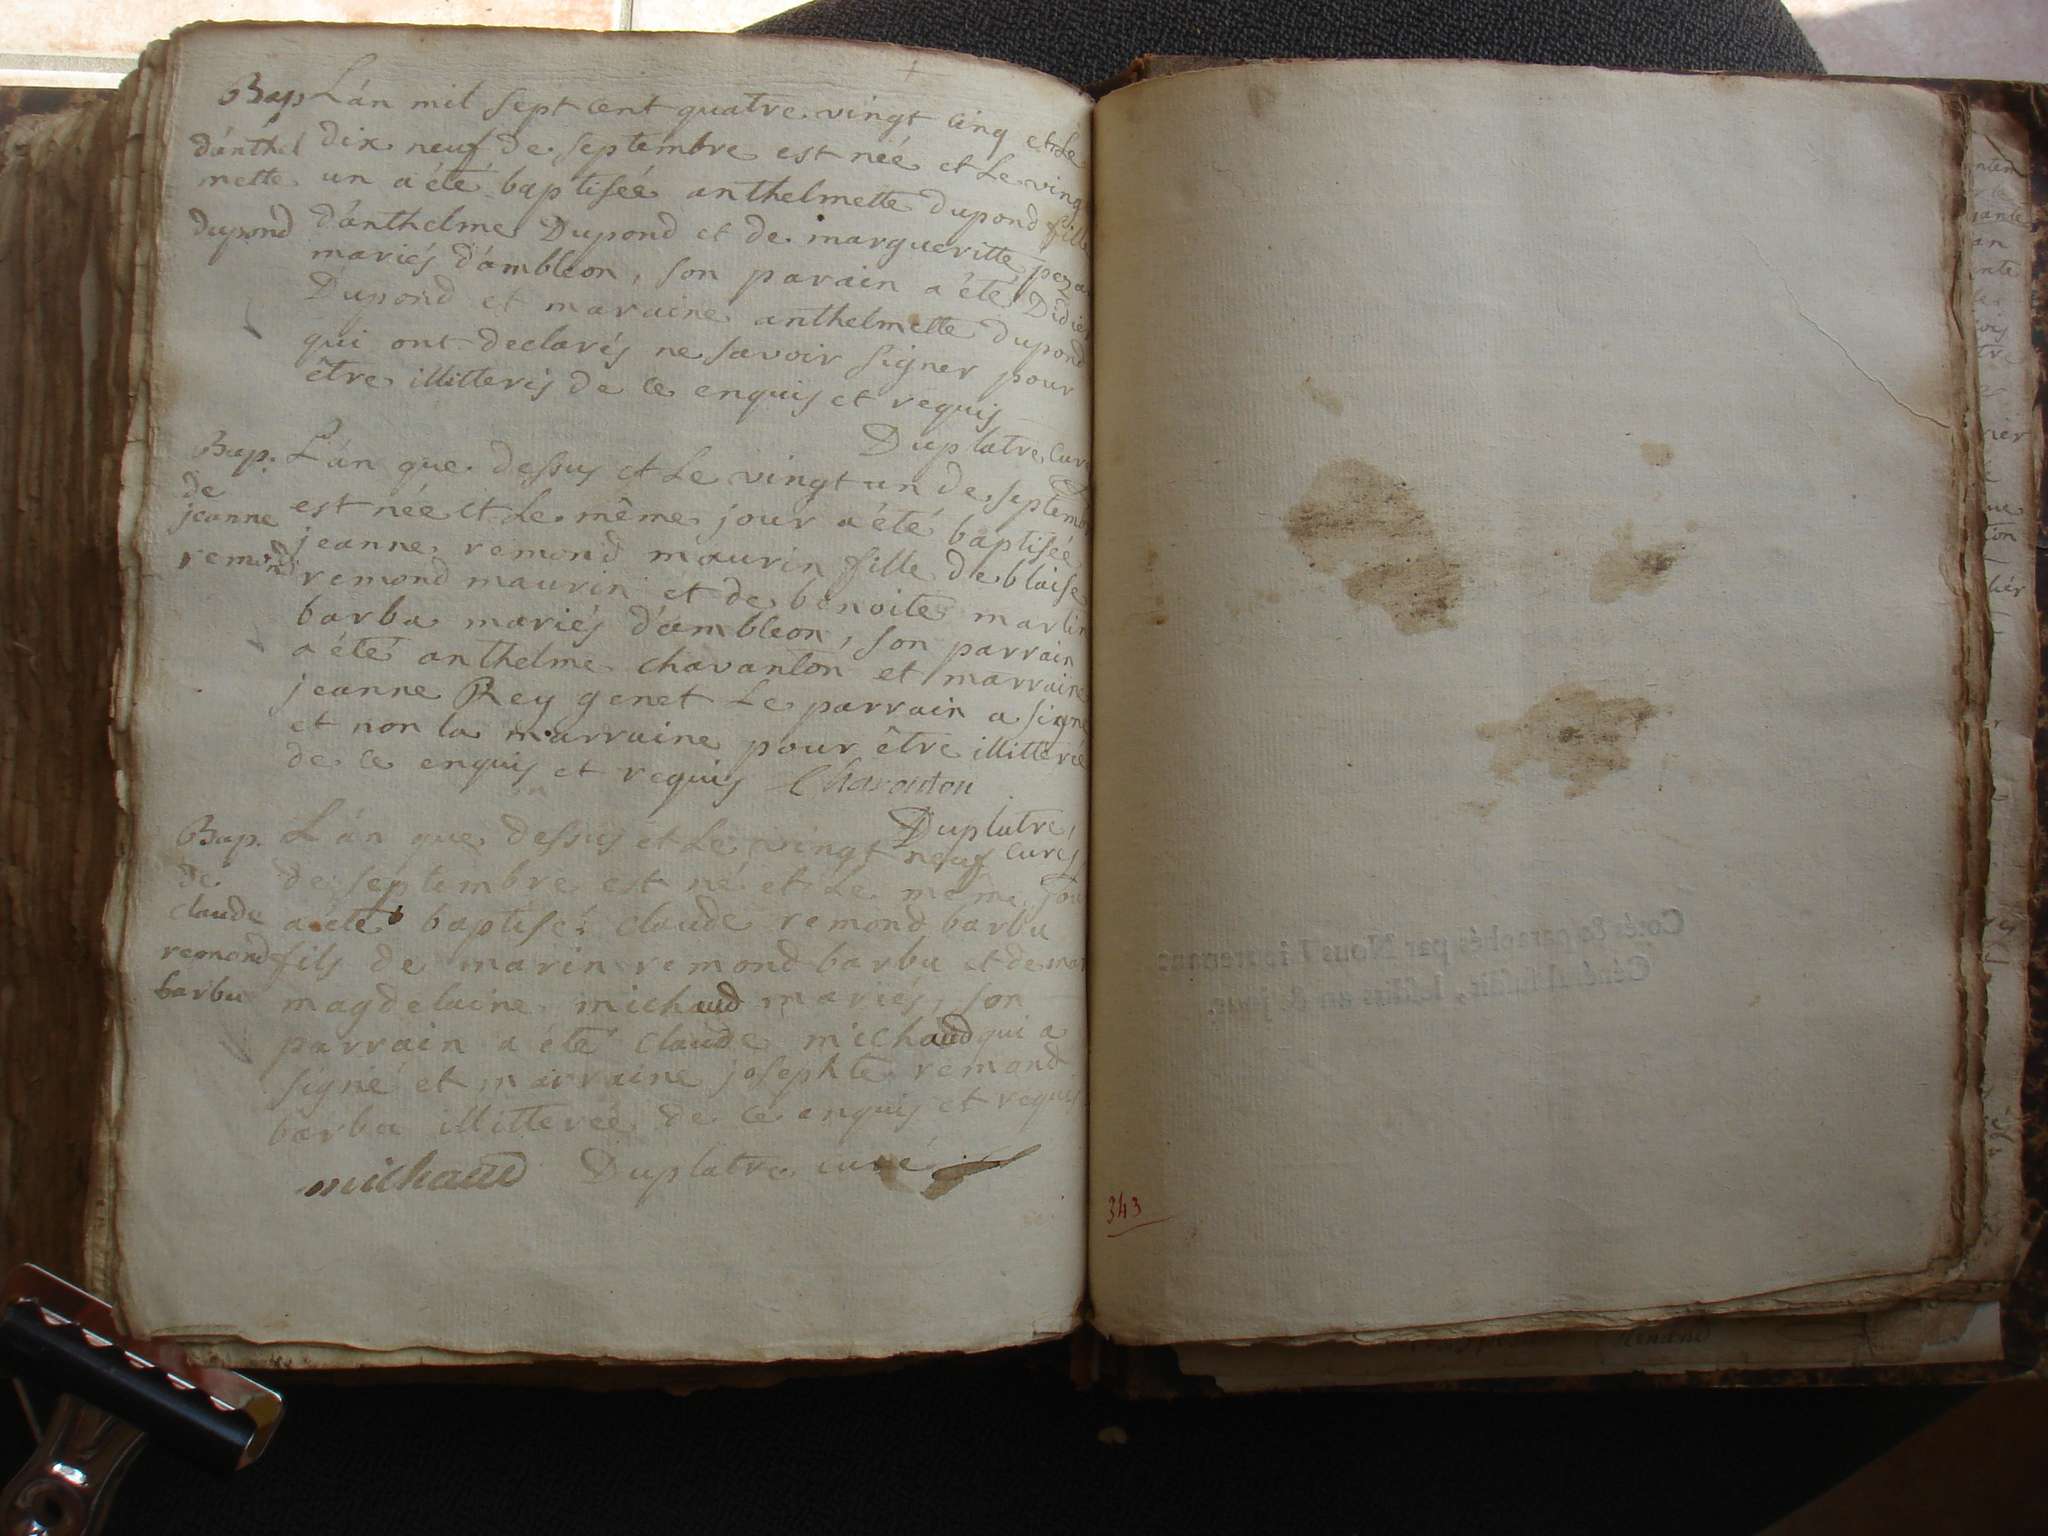 Bap L'án mil sept cent quatre vingt cinq et Le
d'ánthel dix neuf de septembre est née et Le vingt
mette un a été baptiseé anthelmette Dupond fille
dupond d'ánthelme Dupond et de margueritte
mariés d'ámbleon, son parain a été Didier
Dupond et maraine anthelmette dupond
qui ont declarés ne savoir signer pour
être illitterés de ce enquis et requis
Duplatre Curé
Bap. L'án que dessus et Le vingt un de septembre
de est née et Le même jour a été baptiseé
jeanne jeanne remond maurin fille de blaise
remond remond maurin et de benoite martin
barba mariés d'ámbleon, son parrain
a été anthelme chavanton et marraine
jeanne Rey genet Le parrain a signé
et non la marraine pour être illitteré
de ce enquis et requis Chavanton
Duplatre,
curé
Bap. L'án que dessus et Le vingt neuf
de de septembre est né et Le meme jour
claude a été baptisé claude remond barba
remond fils de marin remond barba et de
barba magdelaine michaud mariés, son
parrain a été claude michaud qui a
signé et marraine josephte remond
barba illitereé de cé enquis et requis
michaud Duplatre curé
343
Cotés & paraphés par Nous Lieutenant
Général susdit, lesdits an & jour.